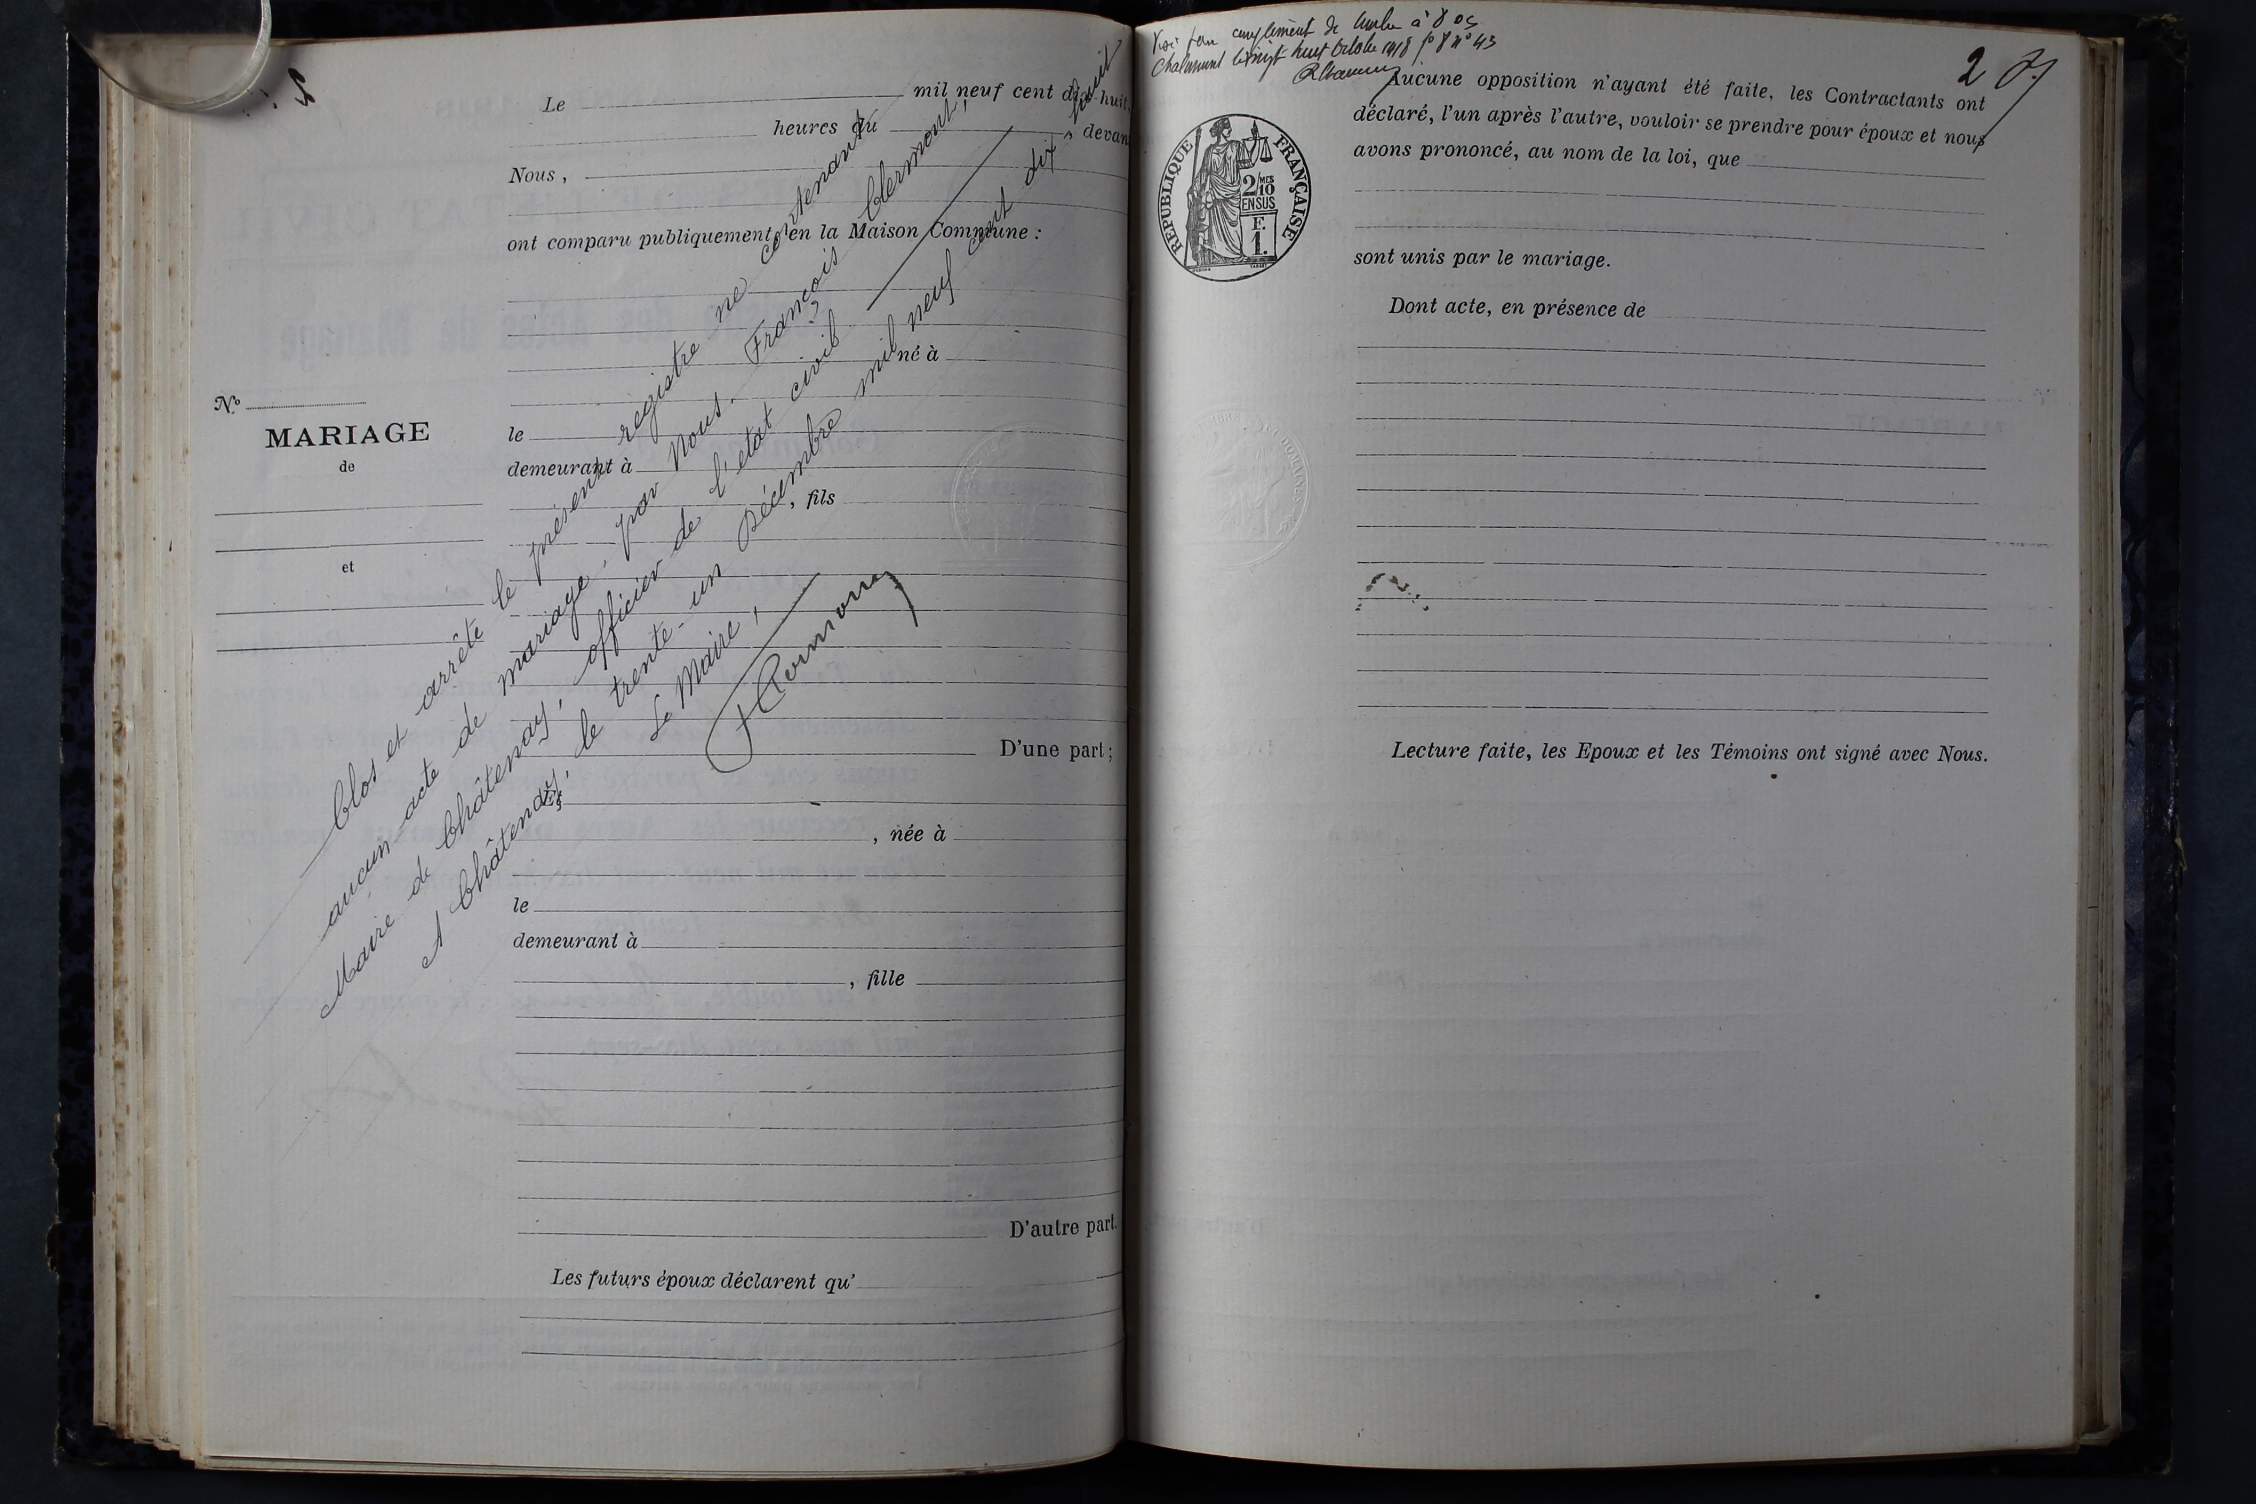 Le mil neuf cent dix-huit,
heures du , devant
Nous,
ont comparu publiquement en la Maison Commune :
né à
No
MARIAGE
de
et
le
demeurant à
, fils
D'une part;
Et
, née à
le
demeurant à
, fille
D'autre part.
Les futurs époux déclarent qu'
Clos et arrêté le présent registre ne contenant
aucun acte de mariage, par nous François Clermont,
Maire de Châtenay, officier de l'état civil
A Châtenay, le trente-un Décembre mil neuf cent dix-huit
Le Maire,
Chalamont le vingt huit octobre 1918 fo 8 no 43
2
RÉPUBLIQUE FRANÇAISE
2/10
MES
EN SUS
F.
1.
Aucune opposition n'ayant été faite, les Contractants ont
déclaré, l'un après l'autre, vouloir se prendre pour époux et nous
avons prononcé, au nom de la loi, que
sont unis par le mariage.
Dont acte, en présence de
Lecture faite, les Epoux et les Témoins ont signé avec Nous.